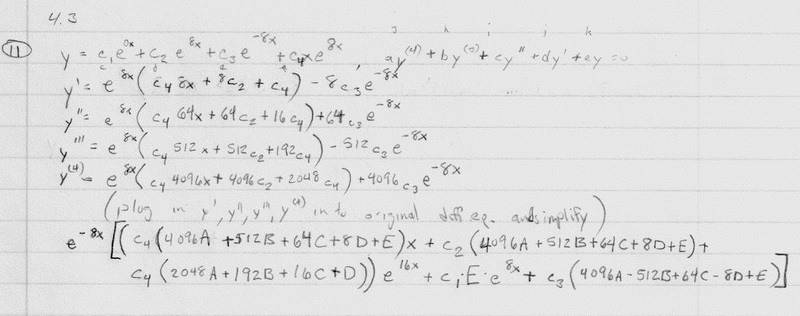 4.3
11 y = c₁e⁰ˣ + c₂e⁸ˣ + c₃e⁻⁸ˣ + c₄xe⁸ˣ , ay⁽⁴⁾ + by⁽³⁾ + cy'' + dy' + ey = 0
y' = e⁸ˣ(c₄8x + 8c₂ + c₄) - 8c₃e⁻⁸ˣ
y'' = e⁸ˣ(c₄64x + 64c₂ + 16c₄) + 64c₃e⁻⁸ˣ
y''' = e⁸ˣ(c₄512x + 512c₂ + 192c₄) - 512c₃e⁻⁸ˣ
y⁽⁴⁾ = e⁸ˣ(c₄4096x + 4096c₂ + 2048c₄) + 4096c₃e⁻⁸ˣ
(plug in y', y'', y''', y⁽⁴⁾ in to original diff eq. and simplify)
e⁻⁸ˣ[(c₄(4096A + 512B + 64C + 8D + E)x + c₂(4096A + 512B + 64C + 8D + E) +
c₄(2048A + 192B + 16C + D))e¹⁶ˣ + c₁E·e⁸ˣ + c₃(4096A - 512B + 64C - 8D + E)]